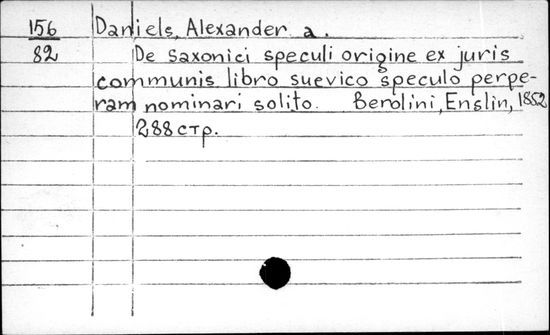 156 Daniels, Alexander a.
82 De saxonici speculi origine ex juris
communis libro suevico speculo perpe-
ram nominari solito. Berolini, Enslin, 1852
288 стр.